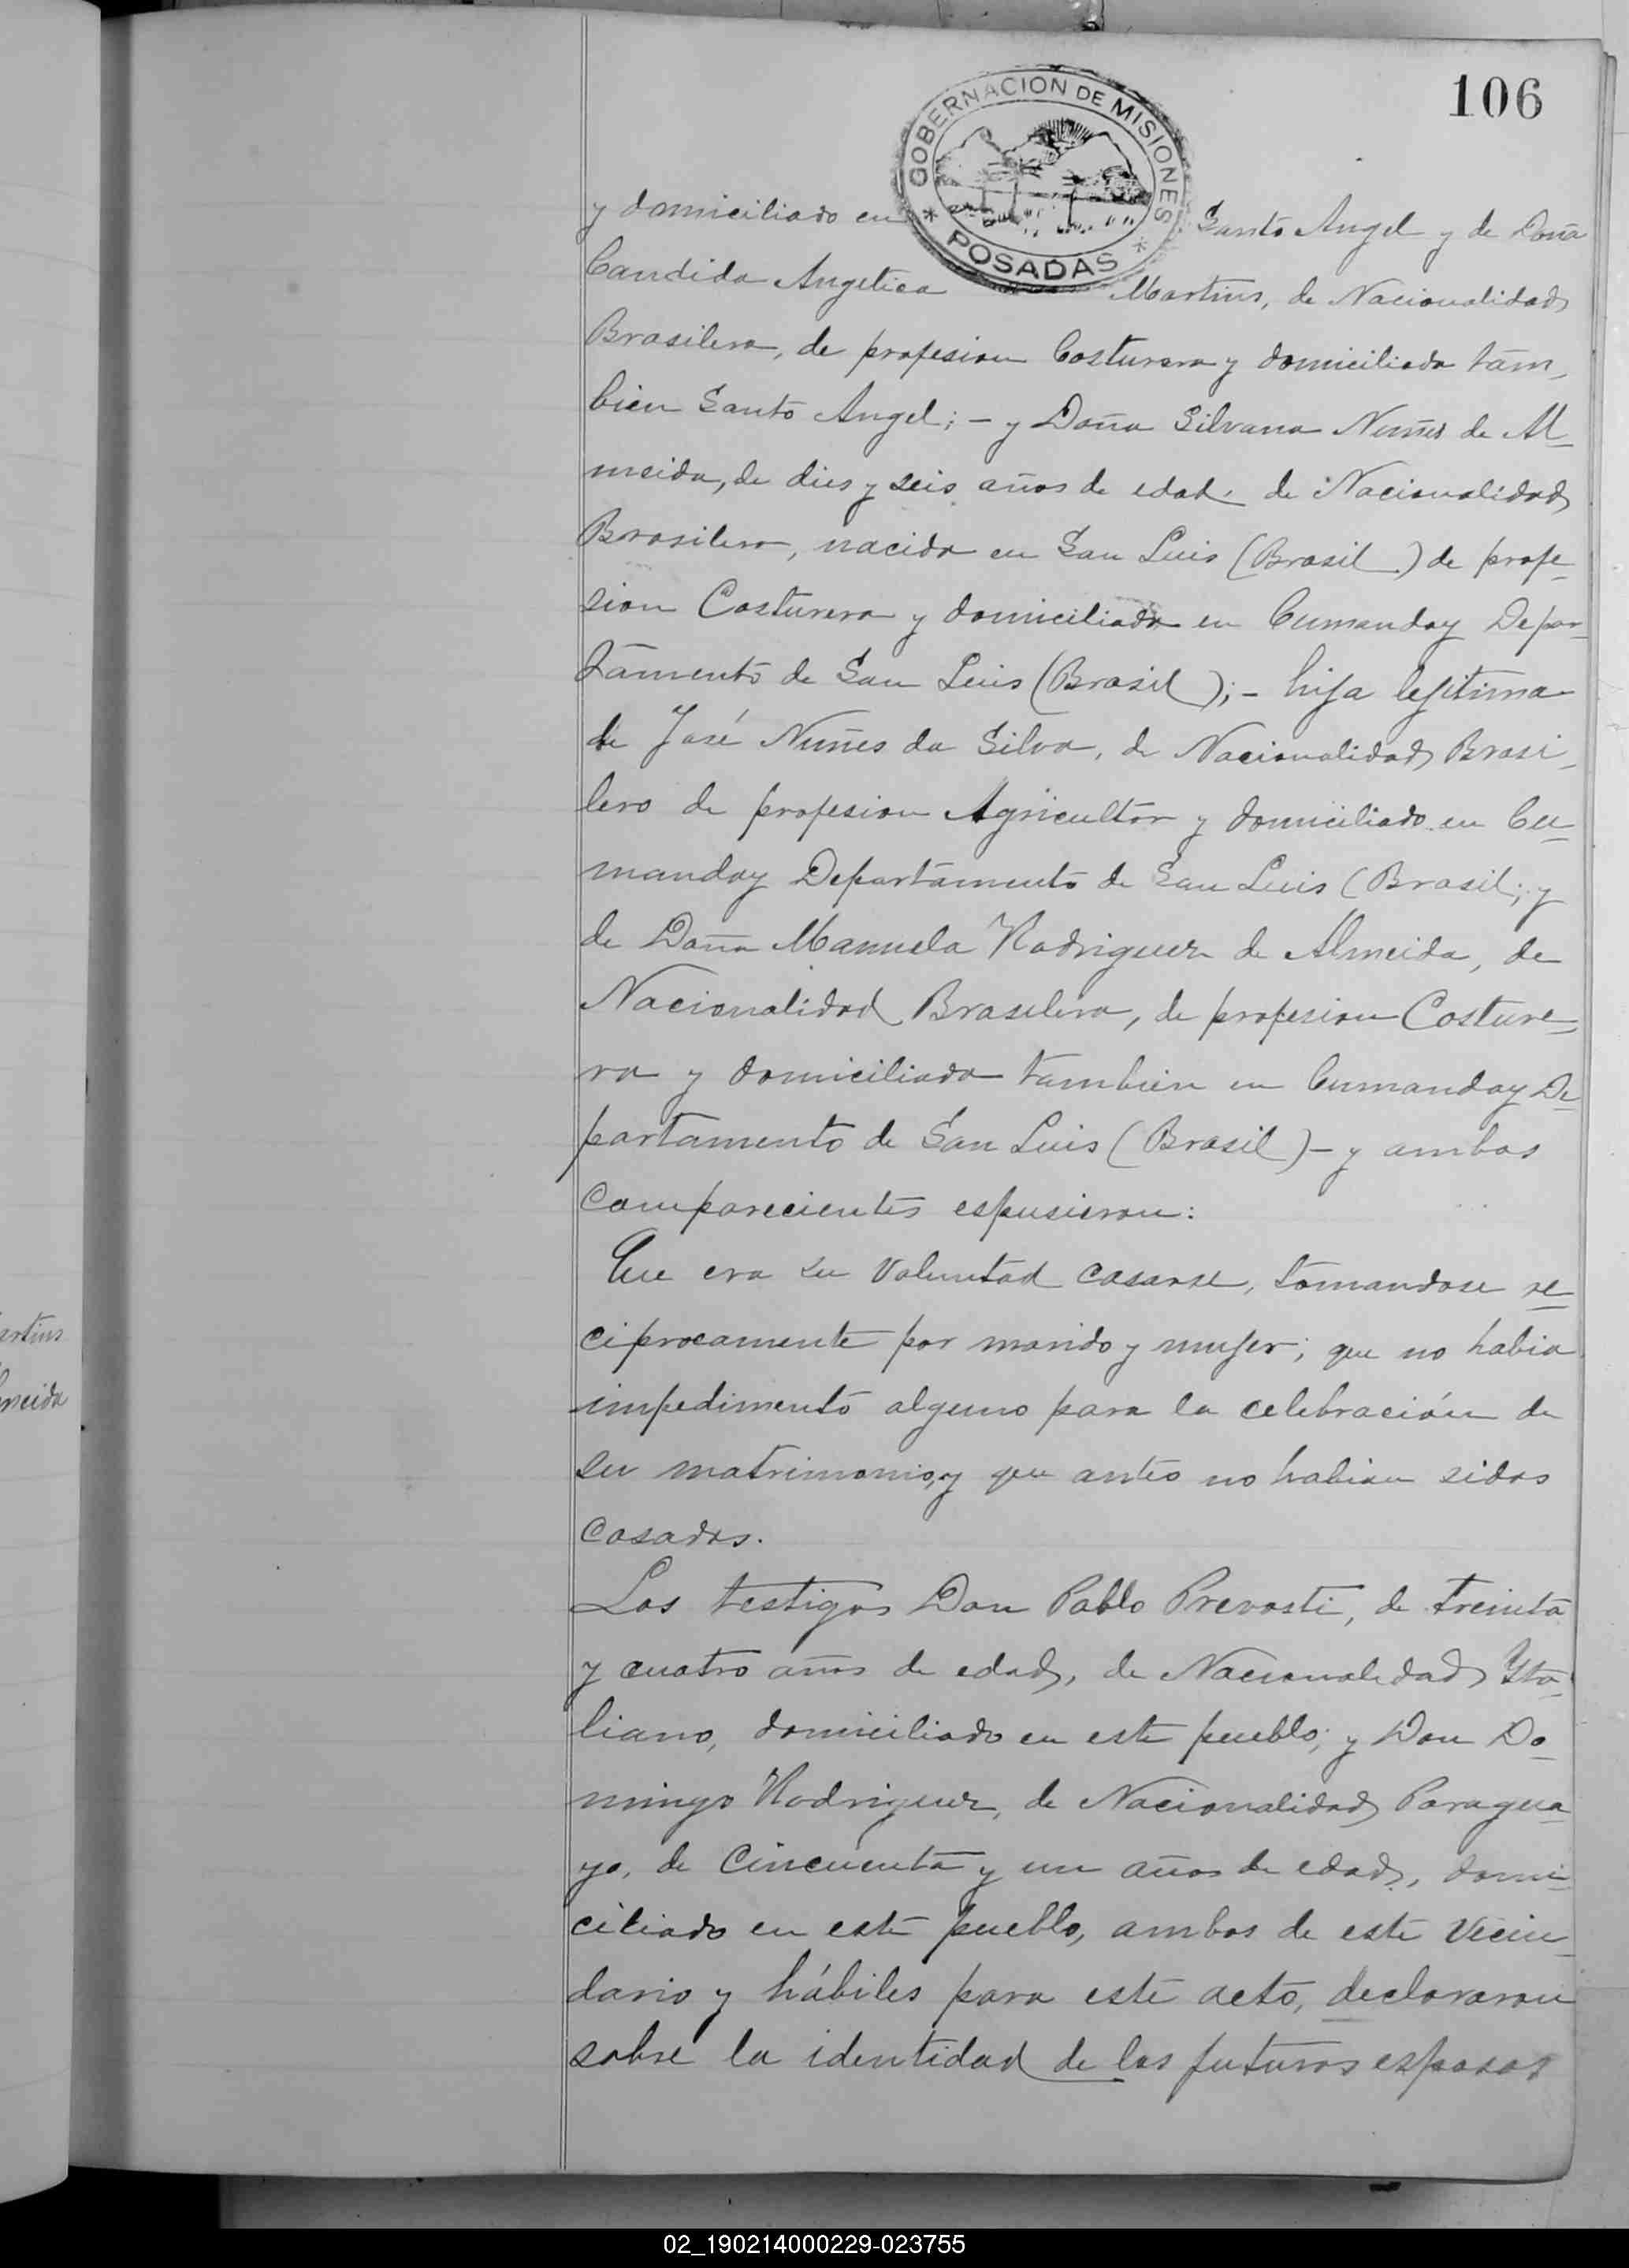 106
GOBERNACION DE MISIONES
* POSADAS *
y domiciliado en Santo Angel y de Doña
Candida Angelica Martins, de Nacionalidad
Brasilera, de profesion Costurera y domiciliada tam-
bien Santo Angel; - y Doña Silvana Nuñes de Al-
meida, de dies y seis años de edad. de Nacionalidad
Brasilera, nacida en San Luis (Brasil) de profe-
sion Costurera y domiciliada en Cumanday Depar-
tamento de San Luis (Brasil); - hija lejitima
de José Nuñes da Silva, de Nacionalidad Brasi-
lero de profesion Agricultor y domiciliado en Cu-
manday Departamento de San Luis (Brasil; y
de Doña Manuela Rodriguez de Almeida, de
Nacionalidad Brasilera, de profesion Costure-
ra y domiciliada tambien en Cumanday De-
partamento de San Luis (Brasil) - y ambos
comparecientes espusieron:
Que era su voluntad casarse, tomandose re-
ciprocamente por marido y mujer; que no habia
impedimento alguno para la celebración de
su matrimonio, y que antes no habian sidos
casados.
Los testigos Don Pablo Prevosti, de treinta
y cuatro años de edad, de Nacionalidad Yta-
liano, domiciliado en este pueblo; y Don Do-
mingo Rodriguez, de Nacionalidad Paragua-
yo, de cincuenta y un años de edad, domi-
ciliado en este pueblo, ambos de este vecin-
dario y hábiles para este acto, declararon
sobre la identidad de los futuros esposos
artins
lmeida
02_190214000229-023755